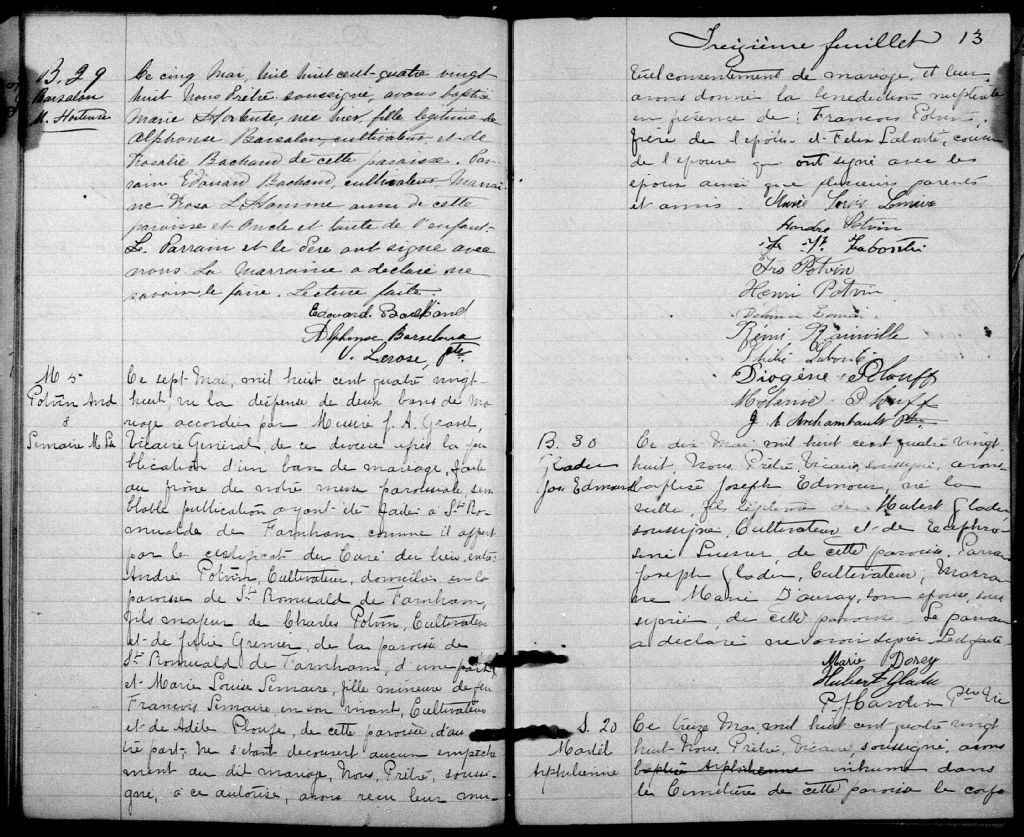 B. 29
Barsalou
M. Hortense
Ce cinq Mai, mil huit cent quatre vingt
huit Nous Prêtre soussigné, avons baptisé
Marie Hortense, née hier, fille légitime de
Alphonse Barsalou, cultivateur, et de
Rosalie Bachand de cette paroisse. Par-
rain Edouard Bachand, cultivateur, Marrai-
ne Rosa L'Homme aussi de cette
paroisse et Oncle et tante de l'enfant.
Le Parrain et le Père ont signé avec
nous. La Marraine a déclaré ne
savoir le faire. Lecture faite
Edouard Bachand
Alphonse Barsalou
V. Lerose, ptre
M 5
Potvin And
&
Lemaire M. L
Ce sept Mai, mil huit cent quatre vingt-
huit, vu la dispense de deux bans de ma
riage accordée par Messire J. A. Gravel,
Vicaire Général de ce diocèse après la pu
blication d'un ban de mariage, faite
au prône de notre messe paroissiale, sem
blable publication ayant été faite à St Ro-
muald de Farnham comme il appert
par le certificat du Curé du lieu, entre
André Potvin, Cultivateur, domicilié en la
paroisse de St Romuald de Farnham,
fils majeur de Charles Potvin, Cultivateur
et de Julie Grenier, de la paroisse de
St Romuald de Farnham, d'une part,
et Marie Louise Lemaire, fille mineure de feu
François Lemaire, en son vivant, Cultivateur
et de Adèle Ploufe, de cette paroisse, d'au
tre part; ne s'étant découvert aucun empêche
ment au dit mariage, Nous, Prêtre, soussi-
gné, à ce autorisé, avons reçu leur mu-
Treizième feuillet 13
tuel consentement de mariage, et leur
avons donné la bénédiction nuptiale
en présence de : François Potvin,
frère de l'époux et Felix Labonté, cousin
de l'épouse qui ont signé avec les
époux ainsi que plusieurs parents
et amis. Marie Louise Lemaire
Andre Potvin
Labonté
Frs Potvin
Henri Potvin
Rémi Rainville
Labonté
Diogène Plouff
Plouff
J A Archambault Ptre
B. 30
Gladu
Jos Edmour
Ce dix Mai mil huit cent quatre vingt
huit, Nous, Prêtre, Vicaire, soussigné, avons
baptisé Joseph Edmour, né la
veille, fils légitime de Hubert Gladu
soussigné, Cultivateur et de Euphro
sine Lussier de cette paroisse. Parrain
Joseph Gladu, Cultivateur, Marrai
ne Marie D'auray, son épouse, sous
signée, de cette paroisse. Le parrain
a déclaré ne savoir signer. Lect. faite
Marie Dorey
Hubert Gladu
P. J. Cardin Ptre Vic
S. 20
Martel
Arphilienne
Ce treize Mai mil huit cent quatre vingt
huit Nous, Prêtre, Vicaire, soussigné, avons
baptisé Arphilienne inhumé dans
le Cimetière de cette paroisse le corps